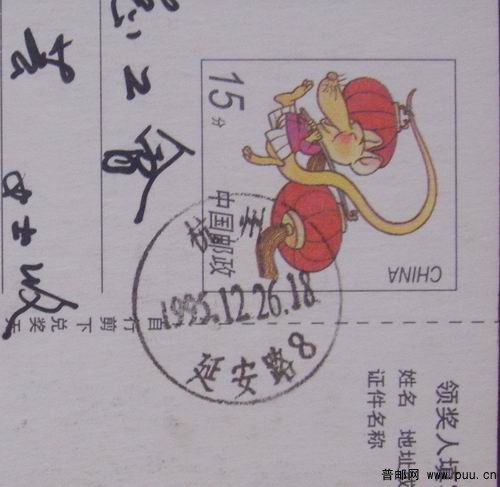 15分
中国邮政
CHINA
杭
1995.12.26.18
延安路8
工会
女士收
自行剪下兑奖无
领奖人填
姓名 地址或
证件名称
普邮网 www.puu.cn